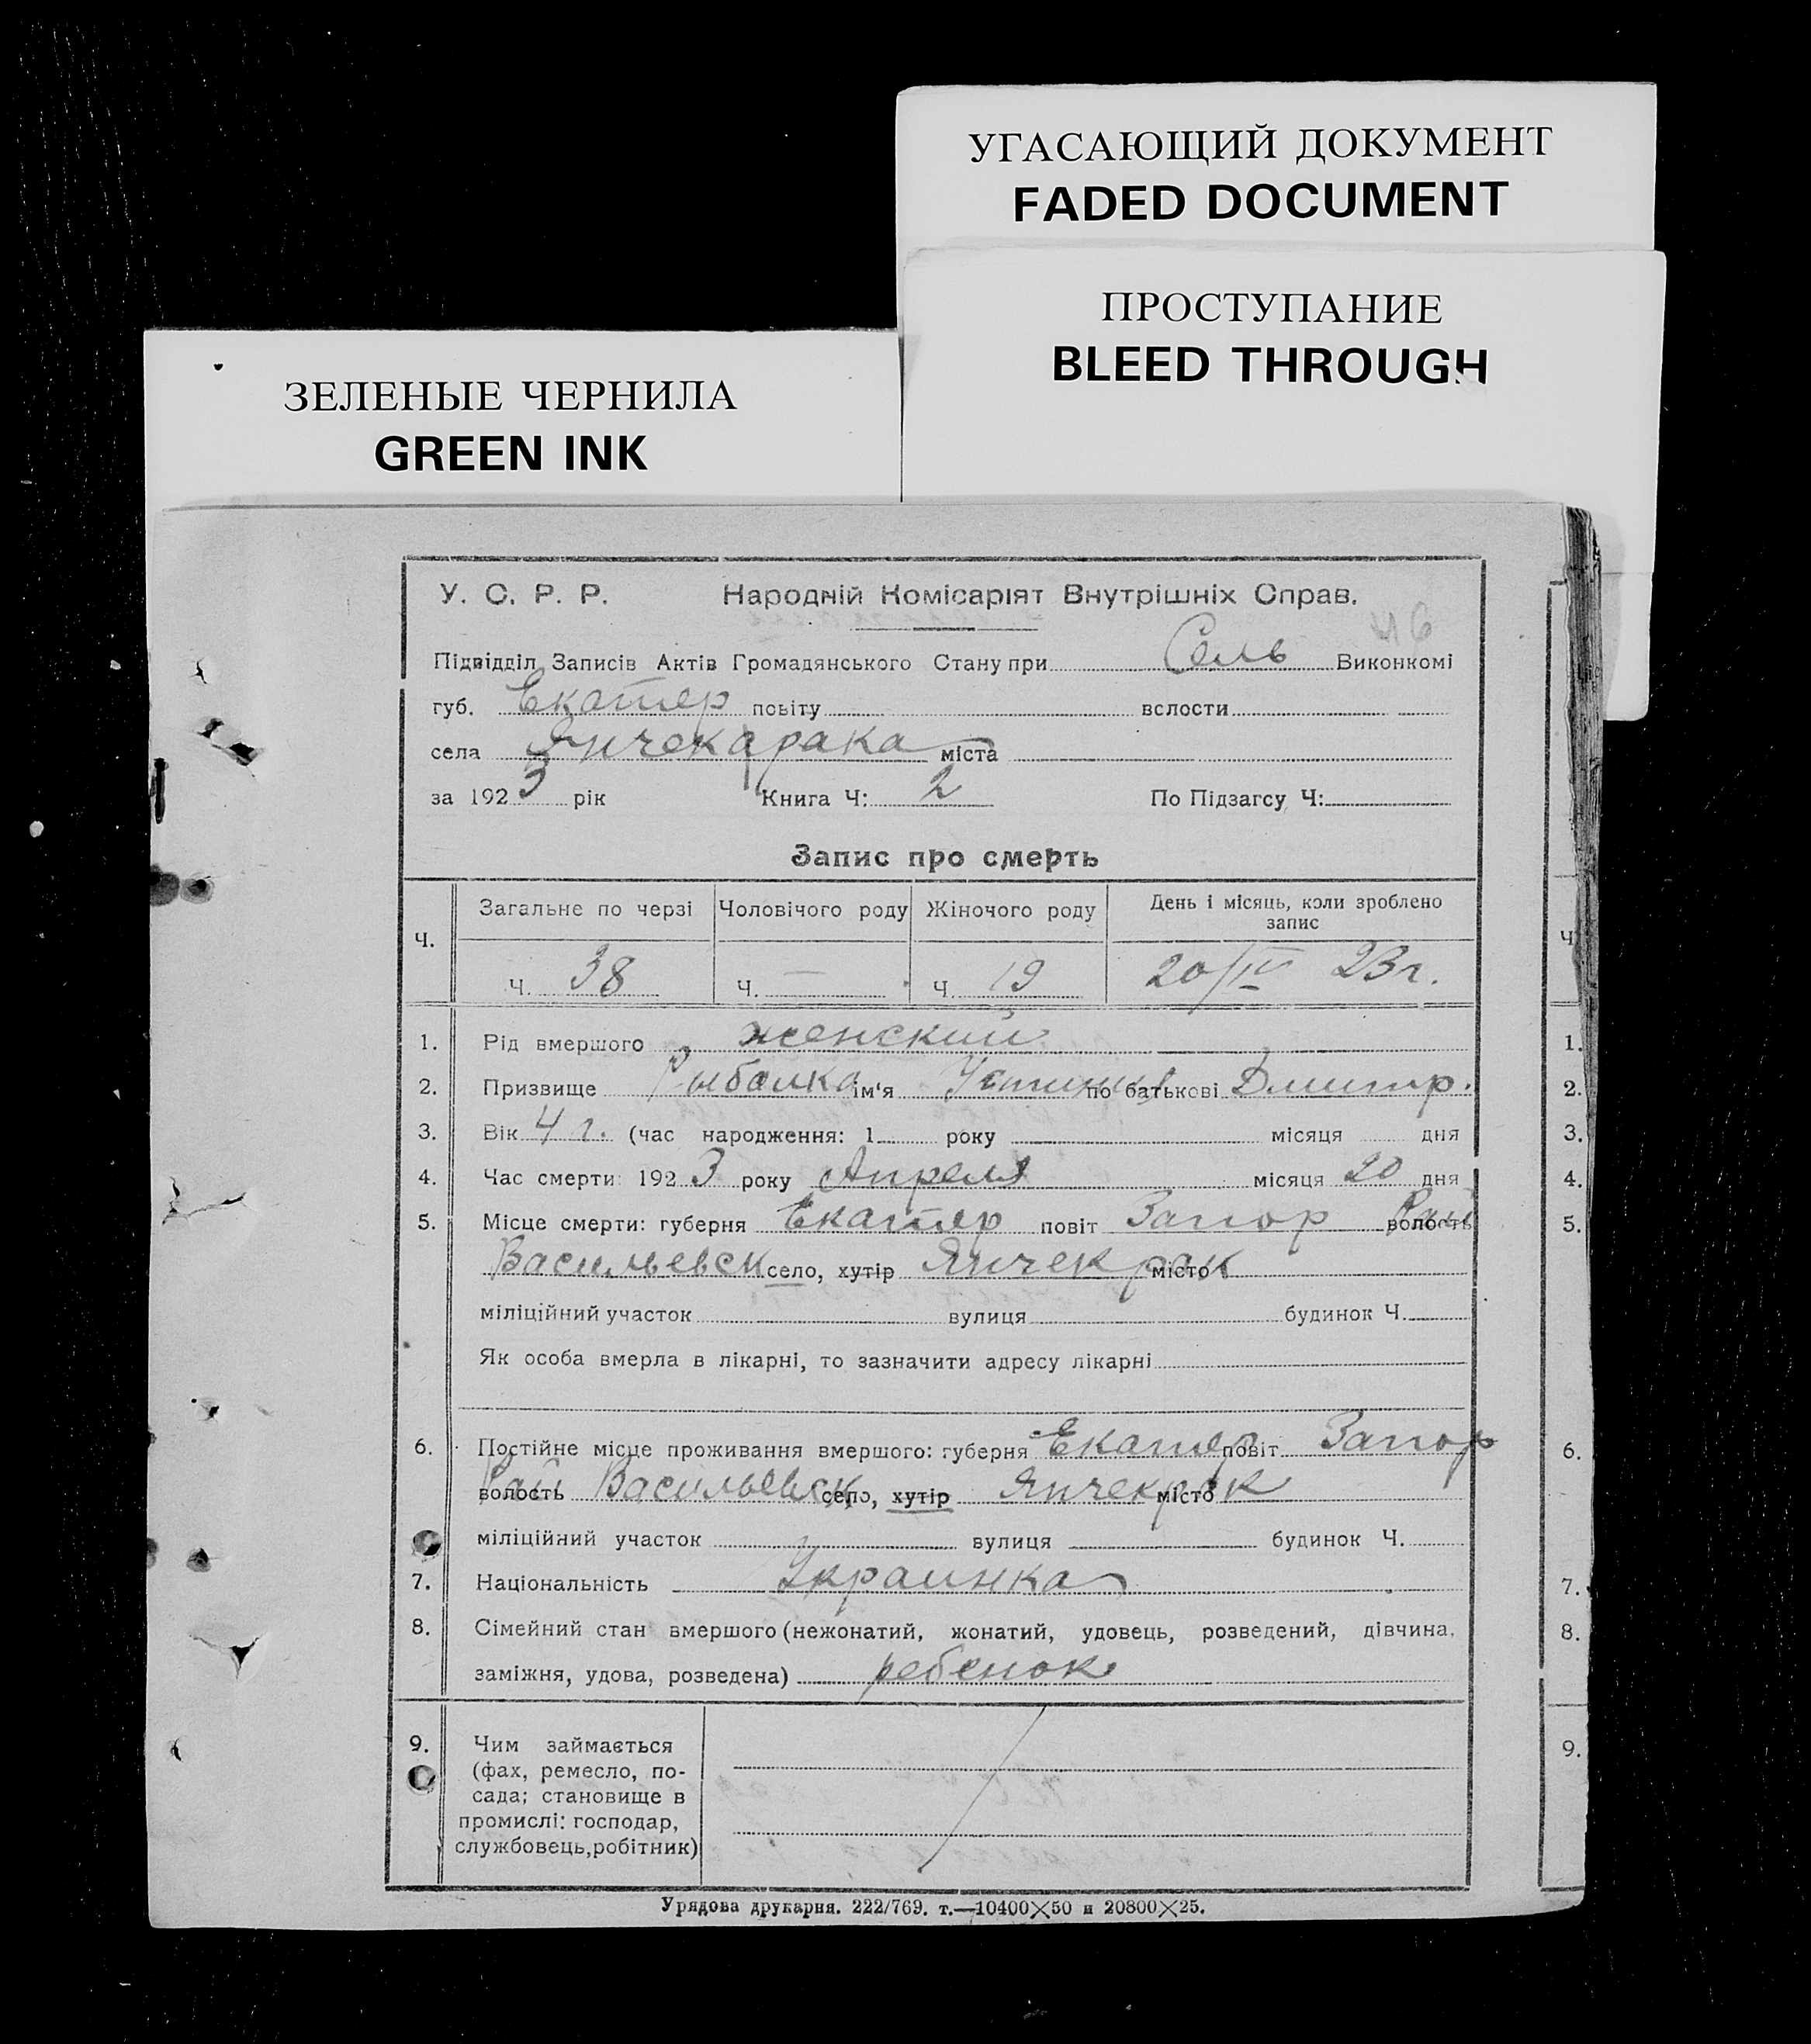 УГАСАЮЩИЙ ДОКУМЕНТ
FADED DOCUMENT
ПРОСТУПАНИЕ
BLEED THROUGH
ЗЕЛЕНЫЕ ЧЕРНИЛА
GREEN INK
У. С. Р. Р. Народній Комісаріят Внутрішніх Справ.
46
Підвідділ Записів Актів Громадянського Стану при Сель Виконкомі
губ. Екатер повіту волости
села Янчекарака міста
за 1923 рік Книга Ч: 2 По Підзагсу Ч:
Запис про смерть
Ч. Загальне по черзі Чоловічого роду Жіночого роду День і місяць, коли зроблено
запис
Ч. 38 Ч. — Ч. 19 20/IV 23 г.
1. Рід вмершого женский
2. Призвище Рыбалка ім'я Устиния по батькові Дмитр.
3. Вік 4 г. (час народження: 1 року місяця дня
4. Час смерти: 1923 року Апреля місяця 20 дня
5. Місце смерти: губерня Екатер повіт Запор волость Рай
Васильевск село, хутір Янчекрак місто
міліційний участок вулиця будинок Ч.
Як особа вмерла в лікарні, то зазначити адресу лікарні
6. Постійне місце проживання вмершого: губерня Екатер повіт Запор
волость Рай Васильевск село, хутір Янчекрак місто
міліційний участок вулиця будинок Ч.
7. Національність Украинка
8. Сімейний стан вмершого (нежонатий, жонатий, удовець, розведений, дівчина,
заміжня, удова, розведена) ребенок
9. Чим займається
(фах, ремесло, по-
сада; становище в
промислі: господар,
службовець, робітник)
Урядова друкарня. 222/769. т.—10400×50 и 20800×25.
Ч
1.
2.
3.
4.
5.
6.
7.
8.
9.